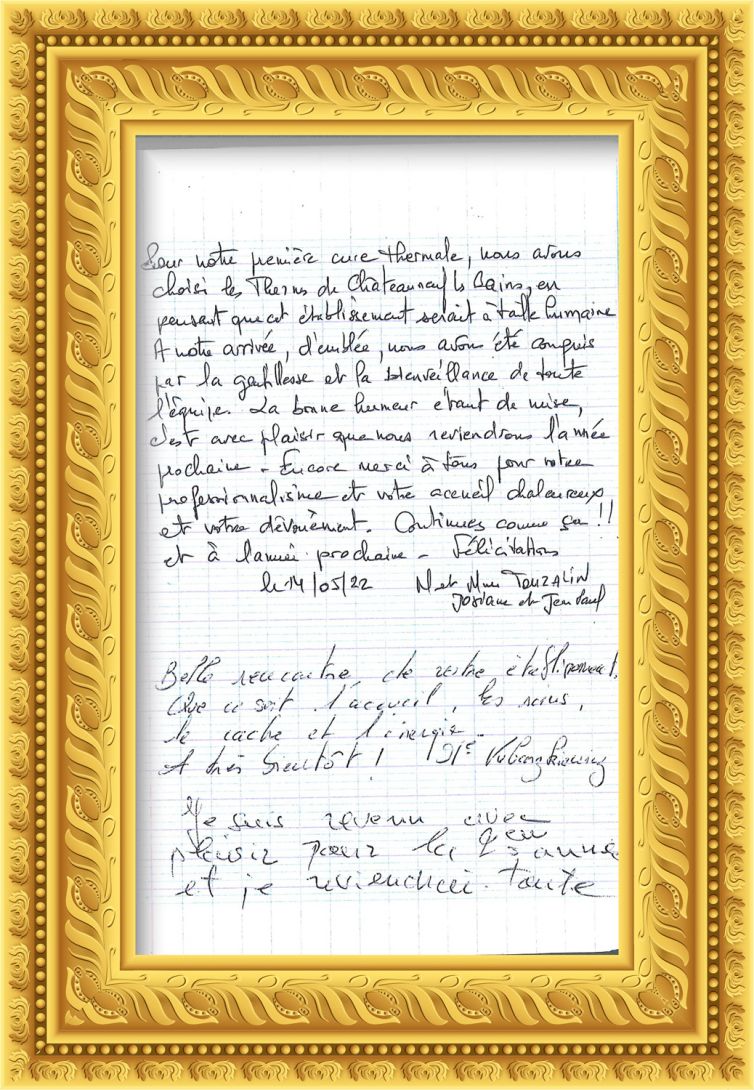 Pour notre première cure thermale, nous avons
choisi les Thermes de Châteauneuf les Bains, en
pensant que cet établissement serait à taille humaine
A notre arrivée, d'emblée, nous avons été conquis
par la gentillesse et la bienveillance de toute
l'équipe. La bonne humeur étant de mise,
c'est avec plaisir que nous reviendrons l'année
prochaine - Encore merci à tous pour votre
professionnalisme et votre accueil chaleureux
et votre dévouément. Continues comme ça !!
et à l'année prochaine - Félicitations
le 14/05/22 M et Mme TONZALIN
Josiane et Jean Paul
Belle rencontre de votre établissement,
Que ce soit l'accueil, les soins,
le cache et l'énergie.
A très bientôt !
Je suis revenu avec
plaisir pour la 2eme année
et je reviendrai toute